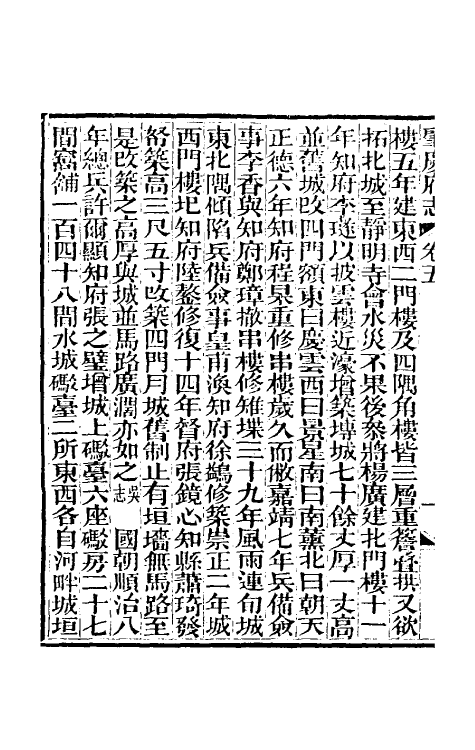 肇慶府志 卷五 一
樓五年建東西二門樓及四隅角樓皆三層重簷叠拱又欲
拓北城至靜明寺會水災不果後叅將楊廣建北門樓十一
年知府李璲以披雲樓近濠增築塼城七十餘丈厚一丈高
並舊城改四門額東曰慶雲西曰景星南曰南薰北曰朝天
正德六年知府程杲重修串樓歲久而敝嘉靖七年兵備僉
事李香與知府鄭璋撤串樓修雉堞三十九年風雨連旬城
東北隅傾陷兵備僉事皇甫渙知府徐鷀修築崇正二年城
西門樓圯知府陸鏊修復十四年督府張鏡心知縣蕭琦發
帑築高三尺五寸改築四門月城舊制止有垣墻無馬路至
是改築之高厚與城並馬路廣濶亦如之吳志 國朝順治八
年總兵許爾顯知府張之璧增城上礮臺六座礮房二十七
間窩舖一百四十八間水城礮臺二所東西各自河畔城垣